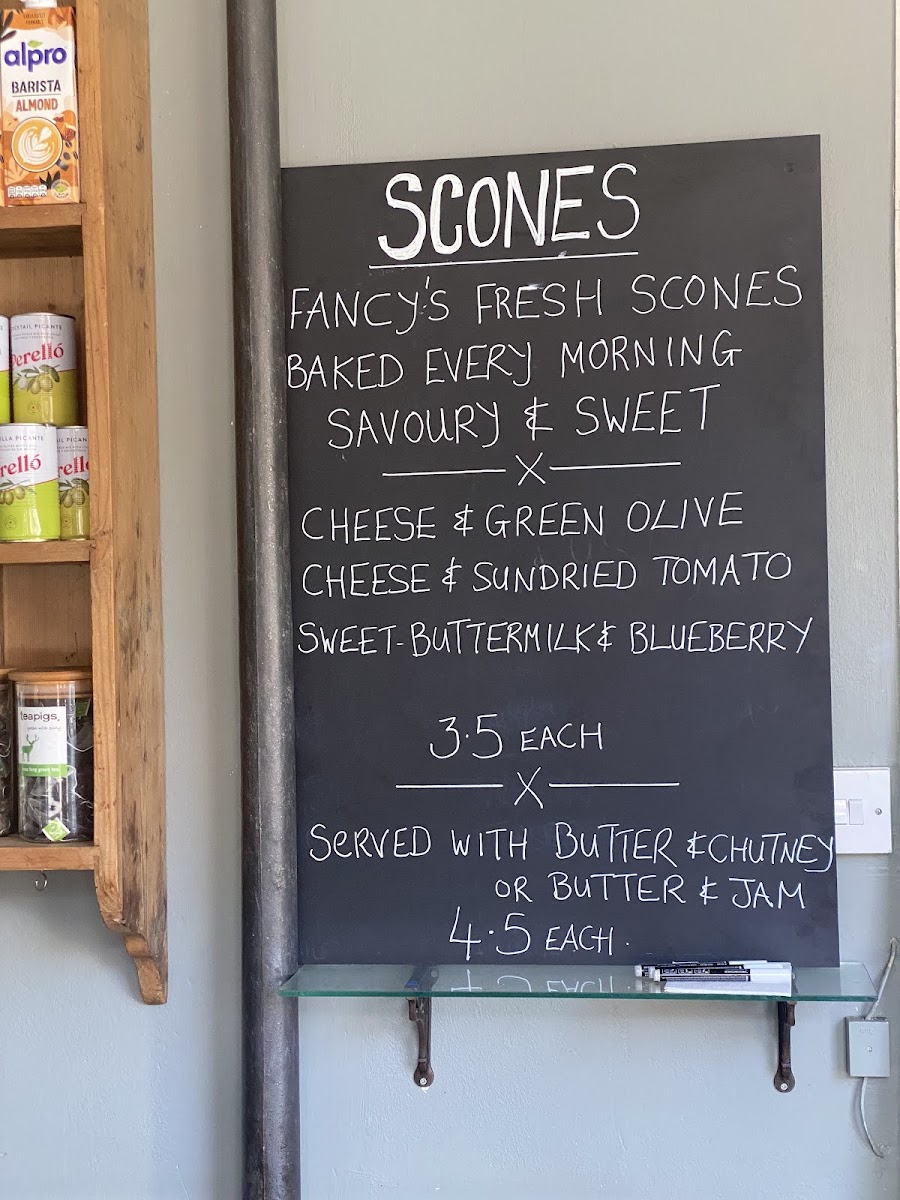 alpro
BARISTA
ALMOND
PICANTE
Perelló
PICANTE
relló
teapigs.
SCONES
FANCY'S FRESH SCONES
BAKED EVERY MORNING
SAVOURY & SWEET
X
CHEESE & GREEN OLIVE
CHEESE & SUNDRIED TOMATO
SWEET-BUTTERMILK & BLUEBERRY
3.5 EACH
X
SERVED WITH BUTTER & CHUTNEY
OR BUTTER & JAM
4.5 EACH.